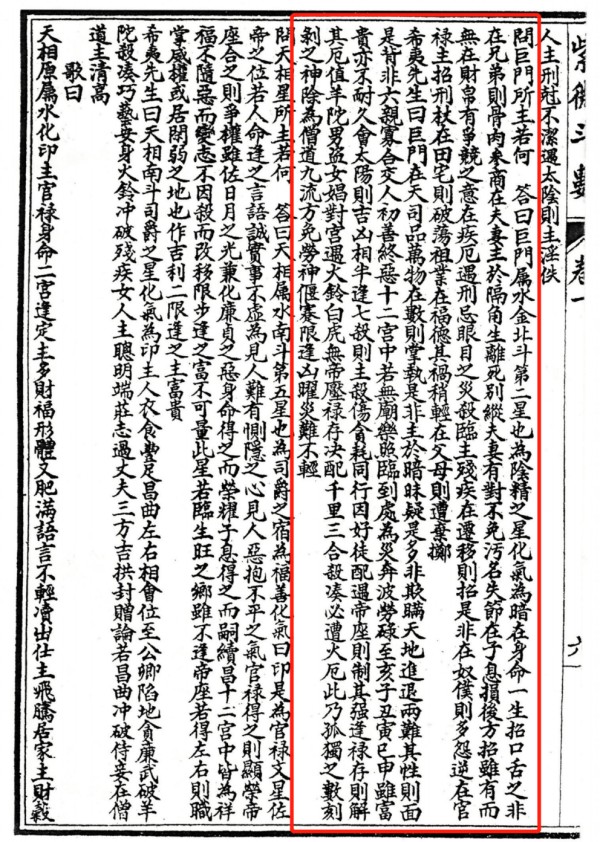 紫微斗數
卷一
六
人主刑尅不潔遇太陰則主淫佚
問巨門所主若何　答曰巨門屬水金北斗第二星也為陰精之星化氣為暗在身命一生招口舌之非
在兄弟則骨肉參商在夫妻主於隔角生離死別縱夫妻有對不免污名失節在子息損後方招雖有而
無在財帛有爭競之意在疾厄遇刑忌眼目之災殺臨主殘疾在遷移則招是非在奴僕則多怨逆在官
祿主招刑杖在田宅則破蕩祖業在福德其禍稍輕在父母則遭棄擲
希夷先生曰巨門在天司品萬物在數則掌執是非主於暗昧疑是多非欺瞞天地進退兩難其性則面
是背非六親寡合交人初善終惡十二宮中若無廟樂照臨到處為災奔波勞碌至亥子丑寅巳申雖富
貴亦不耐久會太陽則吉凶相半逢七殺則主殺傷貪耗同行因好徒配遇帝座則制其强逢祿存則解
其厄值羊陀男盜女娼對宮遇火鈴白虎無帝壓祿存決配千里三合殺湊必遭火厄此乃孤獨之數刻
剝之神除為僧道九流方免勞神偃蹇限逢凶曜災難不輕
問天相星所主若何　答曰天相屬水南斗第五星也為司爵之宿為福善化氣曰印是為官祿文星佐
帝之位若人命逢之言語誠實事不虛為見人難有惻隱之心見人惡抱不平之氣官祿得之則顯榮帝
座合之則爭權雖佐日月之光兼化廉貞之惡身命得之而榮耀子息得之而嗣續昌十二宮中皆為祥
福不隨惡而變志不因殺而改移限步逢之富不可量此星若臨生旺之鄉雖不逢帝座若得左右則職
掌威權或居閑弱之地也作吉利二限逢之主富貴
希夷先生曰天相南斗司爵之星化氣為印主人衣食豐足昌曲左右相會位至公卿陷地貪廉武破羊
陀殺湊巧藝安身火鈴冲破殘疾女人主聰明端莊志過丈夫三方吉拱封贈論若昌曲冲破侍妾在僧
道主清高
歌曰
天相原屬水化印主官祿身命二宮逢定主多財福形體又肥滿語言不輕凟出仕主飛騰居家主財穀